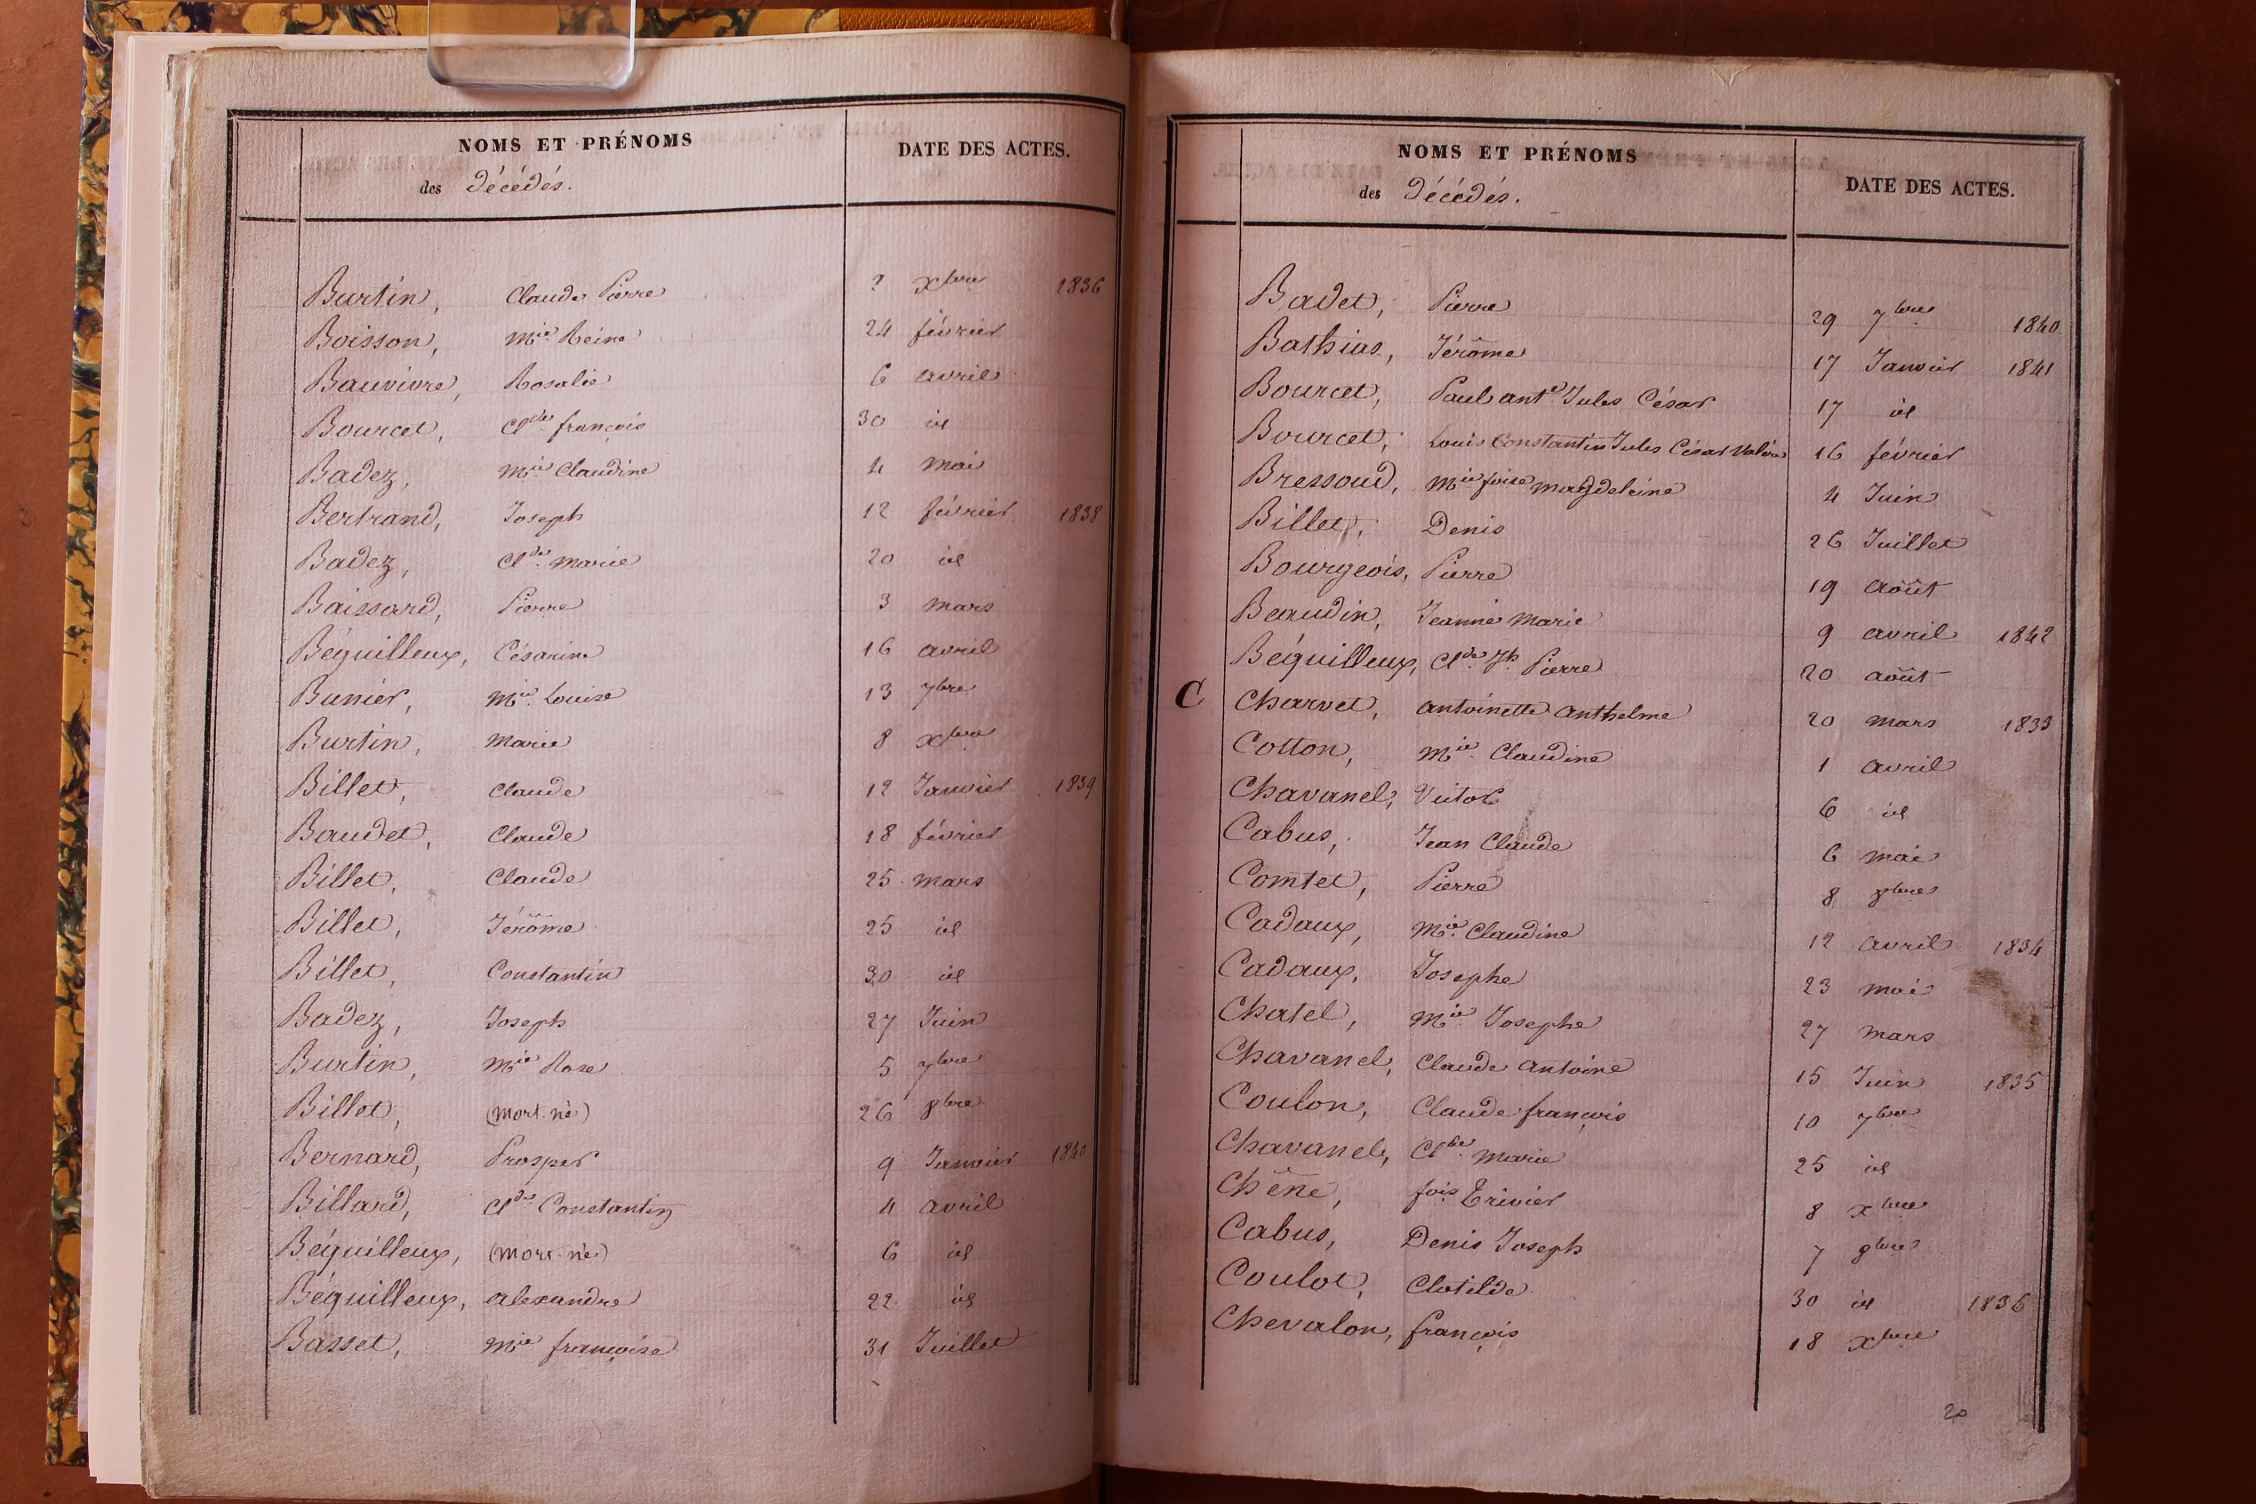 NOMS ET PRÉNOMS
des Décédés.
DATE DES ACTES.
Burtin, Claude Pierre ? xbre 1836
Boisson, Mie Reine 24 février
Bauvivre, Rosalie 6 avril
Bourcet, Clde françois 30 id
Badez, Mie Claudine 4 mai
Bertrand, Joseph 12 février 1838
Badez, Clde Marie 20 id
Baissard, Pierre 3 mars
Béguilleux, Césarine 16 avril
Bunier, Mie Louise 13 7bre
Burtin, Marie 8 xbre
Billet, Claude 12 Janvier 1839
Baudet, Claude 18 février
Billet, Claude 25 mars
Billet, Jérôme 25 id
Billet, Constantin 30 id
Badez, Joseph 27 Juin
Burtin, Mie Rose 5 7bre
Billot, (mort-né) 26 8bre
Bernard, Prosper 9 Janvier 1840
Billard, Clde Constantin 4 avril
Béguilleux, (mort-né) 6 id
Béguilleux, alexandre 22 id
Basset, Mie françoise 31 Juillet
NOMS ET PRÉNOMS
des Décédés.
DATE DES ACTES.
Badet, Pierre 29 7bre 1840
Bathias, Jérôme 17 Janvier 1841
Bourcet, Paul ante Jules César 17 id
Bourcet, Louis Constantin Jules César Valère 16 février
Bressoud, Mie foise Magdeleine 4 Juin
Billet, Denis 26 Juillet
Bourgeois, Pierre 19 août
Beaudin, Jeanne Marie 9 avril 1842
Béguilleux, Clde Jh Pierre 20 août
C Charvet, antoinette anthelme 20 mars 1833
Cotton, Mie Claudine 1 avril
Chavanel, Victor 6 id
Cabus, Jean Claude 6 mai
Comtet, Pierre 8 8bre
Cadaux, Mie Claudine 12 avril 1834
Cadaux, Josephe 23 mai
Chatel, Mie Josephe 27 mars
Chavanel, Claude antoine 15 Juin 1835
Coulon, Claude françois 10 7bre
Chavanel, Clde Marie 25 id
Chêne, fois Trivier 8 xbre
Cabus, Denis Joseph 7 9bre
Coulot, Clotilde 30 id 1836
Chevalon, françois 18 xbre
20